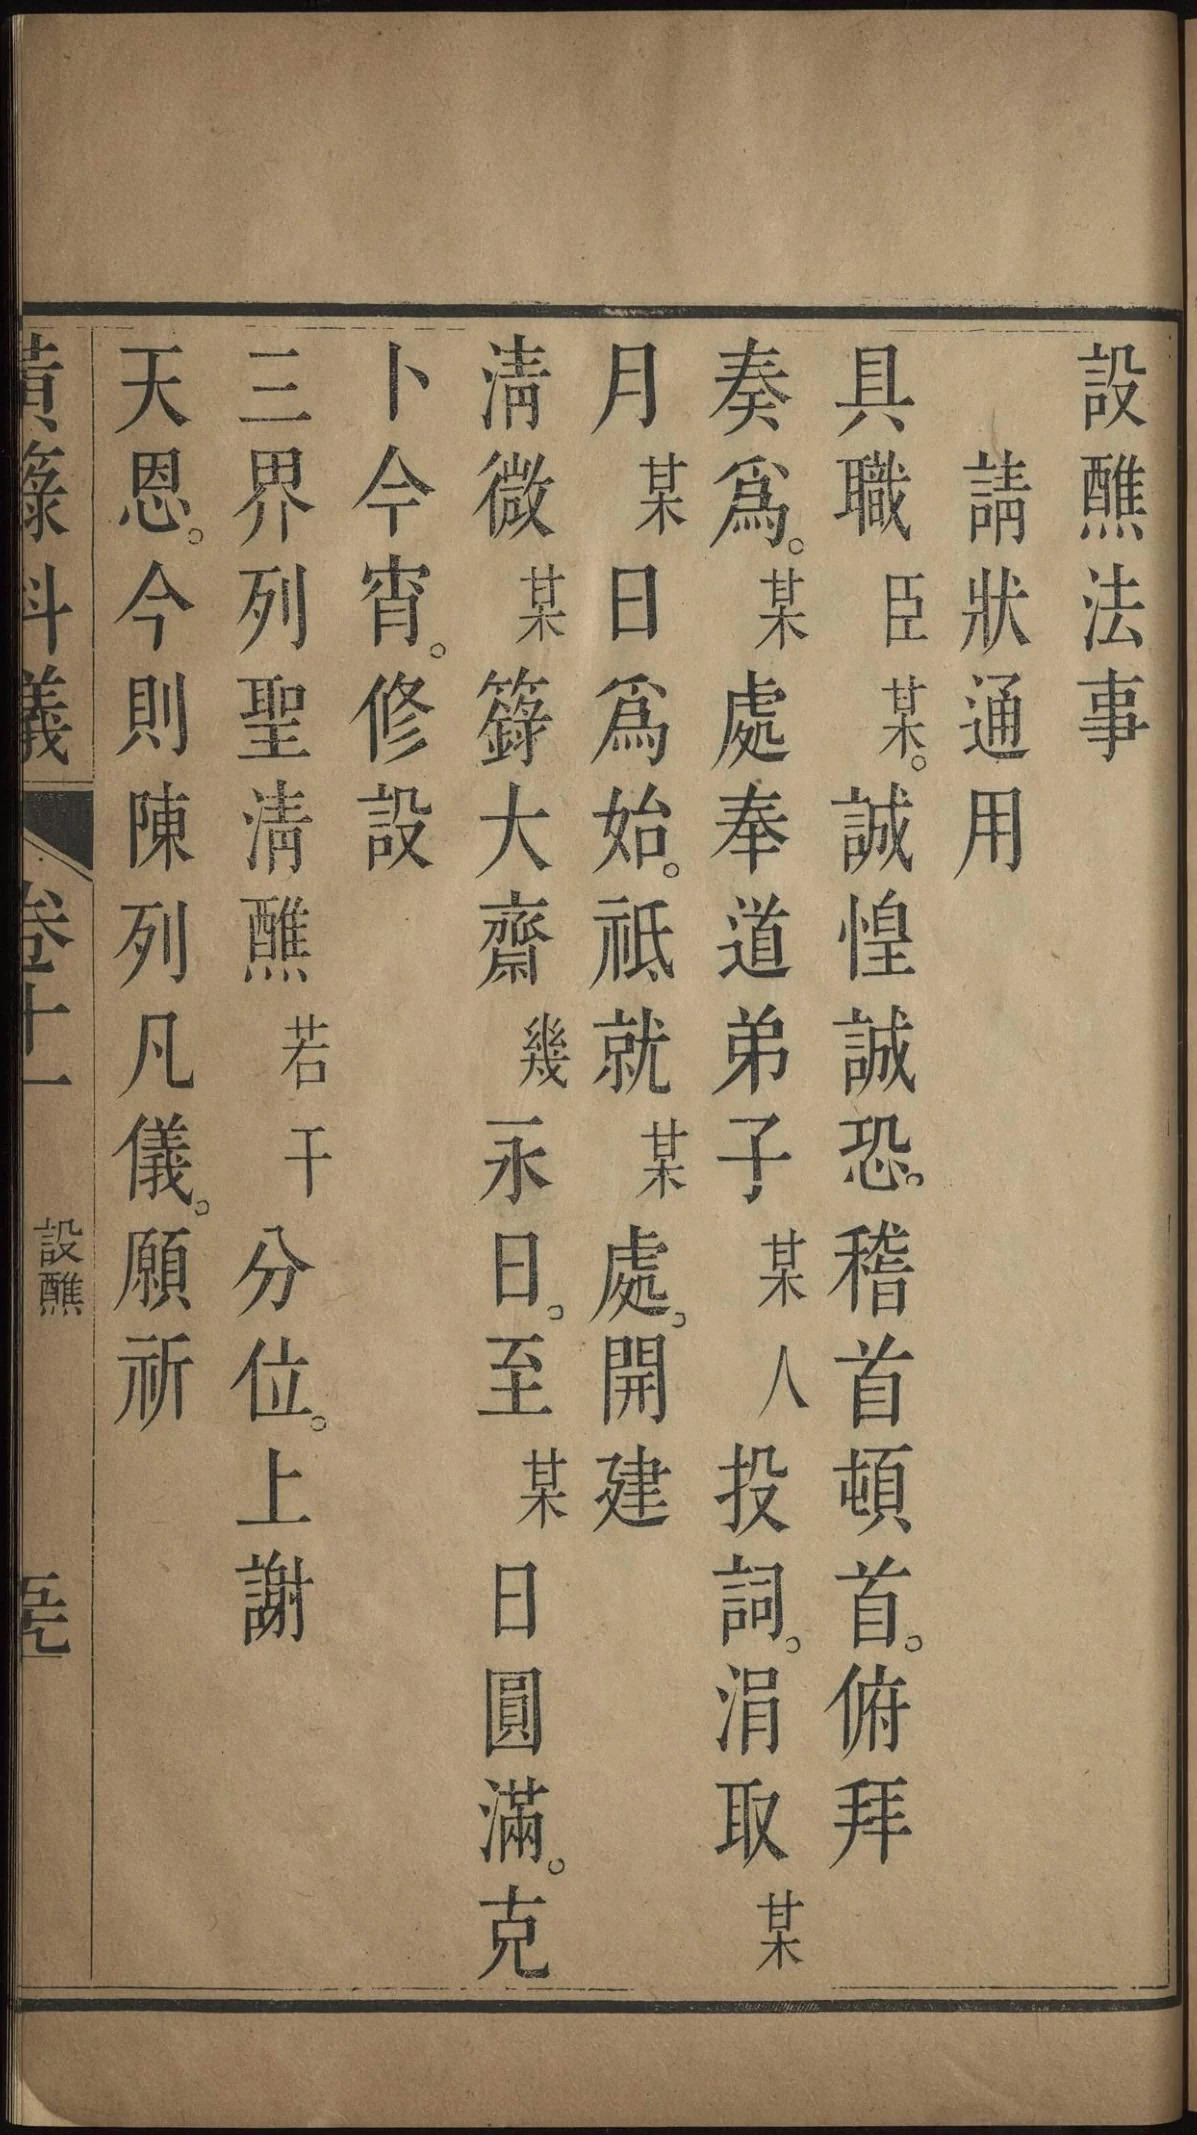 設醮法事
請狀通用
具職臣某。誠惶誠恐。稽首頓首。俯拜
奏爲。某處奉道弟子某人投詞。涓取某
月某日爲始。祗就某處。開建
淸微某籙大齋幾永日。至某日圓滿。克
卜今宵。修設
三界列聖淸醮若干分位。上謝
天恩。今則陳列凡儀。願祈
黃籙科儀 卷十一 設醮